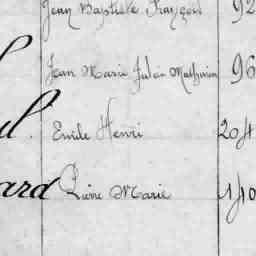 Jean Baptiste François 92
Jean Marie Julien Mathurin 96
l. Emile Henri 204
ard Pierre Marie 140